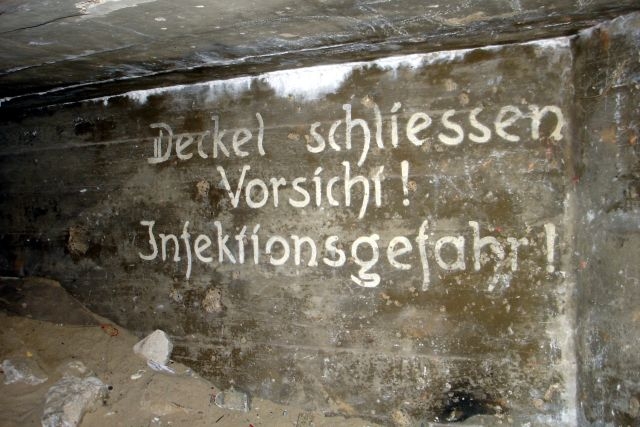 Deckel schliessen
Vorsicht!
Infektionsgefahr!